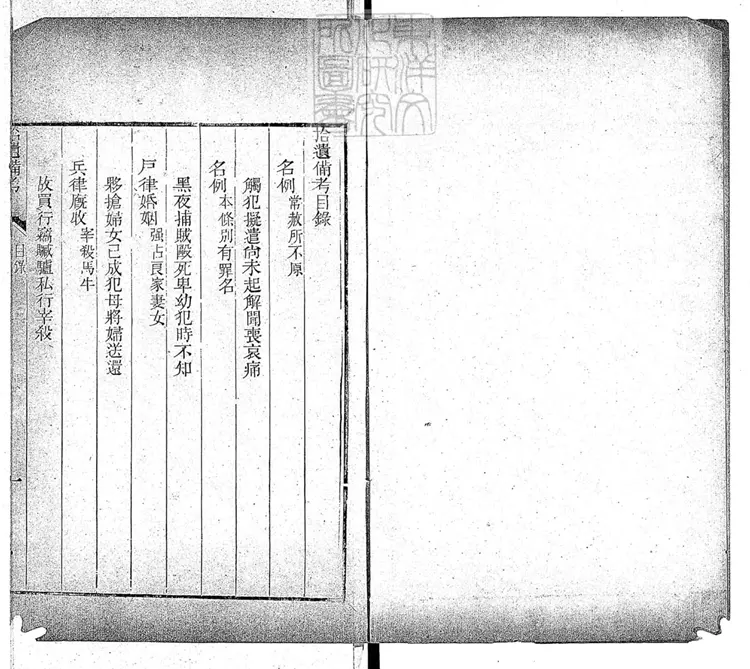 東洋文
化研究
所圖書
拾遺備考目錄
名例 常赦所不原
觸犯擬遣尚未起解聞喪哀痛
名例 本條別有罪名
黑夜捕賊毆死卑幼犯時不知
戸律婚姻 强占良家妻女
夥搶婦女已成犯母將婦送還
兵律廐收 宰殺馬牛
故買行竊贓驢私行宰殺
拾遺備考 目錄 一